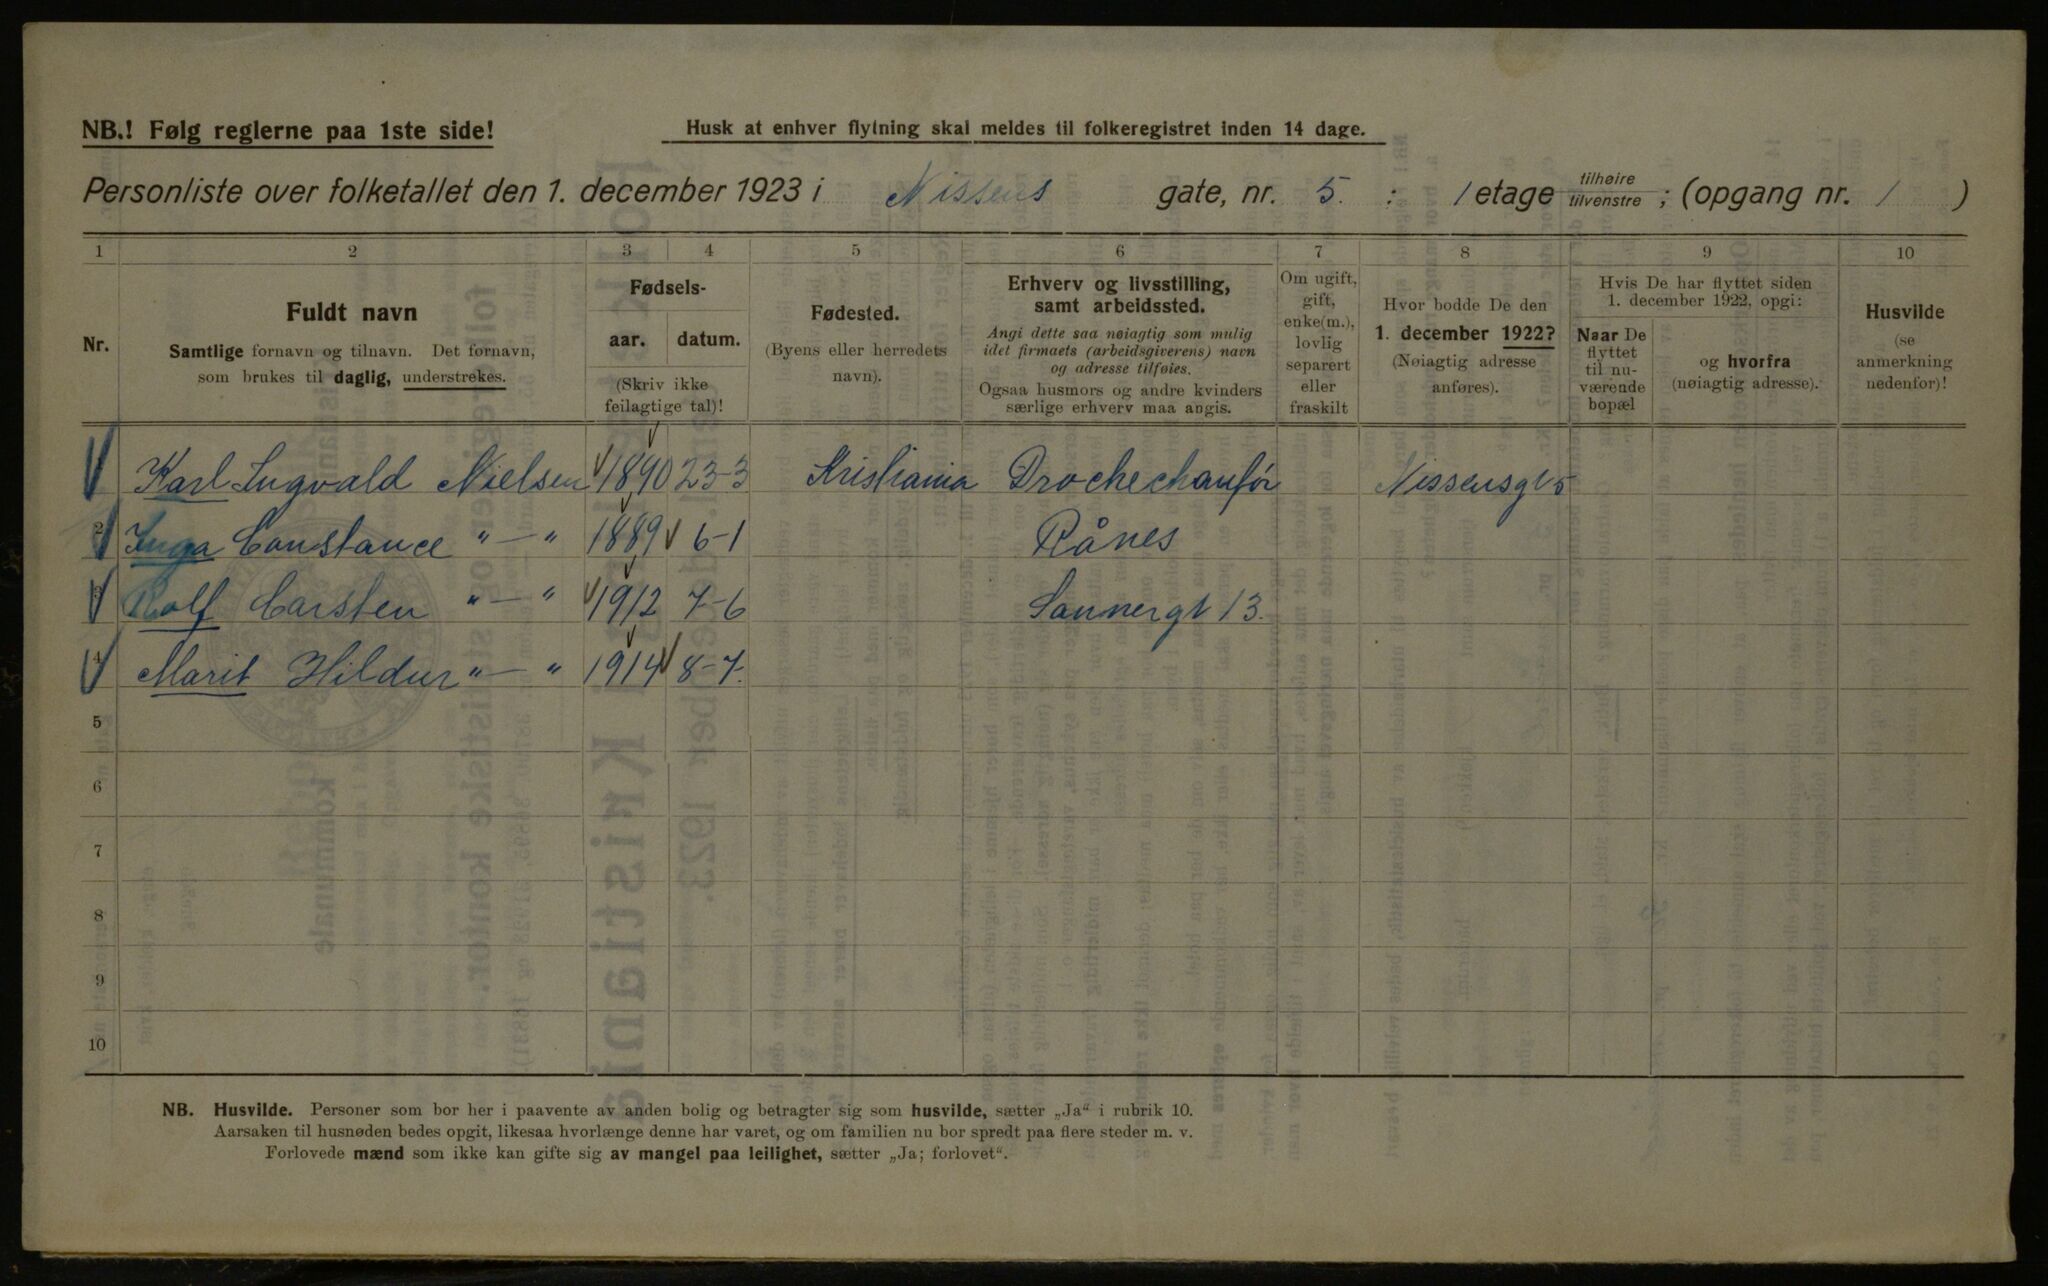 NB.! Følg reglerne paa 1ste side!
Husk at enhver flytning skal meldes til folkeregistret inden 14 dage.
Personliste over folketallet den 1. december 1923 i Nissens gate, nr. 5. : 1 etage tilhøire tilvenstre ; (opgang nr. 1 )
1 2 3 4 5 6 7 8 9 10
Nr.
Fuldt navn
Samtlige fornavn og tilnavn. Det fornavn,
som brukes til daglig, understrekes.
Fødsels-
aar. datum.
(Skriv ikke
feilagtige tal)!
Fødested.
(Byens eller herredets
navn).
Erhverv og livsstilling,
samt arbeidssted.
Angi dette saa nøiagtig som mulig
idet firmaets (arbeidsgiverens) navn
og adresse tilføies.
Ogsaa husmors og andre kvinders
særlige erhverv maa angis.
Om ugift,
gift,
enke(m.),
lovlig
separert
eller
fraskilt
Hvor bodde De den
1. december 1922?
(Nøiagtig adresse
anføres).
Hvis De har flyttet siden
1. december 1922, opgi:
Naar De
flyttet
til nu-
værende
bopæl
og hvorfra
(nøiagtig adresse).
Husvilde
(se
anmerkning
nedenfor)!
Karl Ingvald Nielsen 1890 23-3 Kristiania Drochechaufør Nissensgt 5
2 Inga Constance " — " 1889 6-1 Rånes
3 Rolf Carsten " — " 1912 7-6 Sannergt 13.
4 Marit Hildur " — " 1914 8-7.
5
6
7
8
9
10
NB. Husvilde. Personer som bor her i paavente av anden bolig og betragter sig som husvilde, sætter „Ja“ i rubrik 10.
Aarsaken til husnøden bedes opgit, likesaa hvorlænge denne har varet, og om familien nu bor spredt paa flere steder m. v.
Forlovede mænd som ikke kan gifte sig av mangel paa leilighet, sætter „Ja; forlovet“.